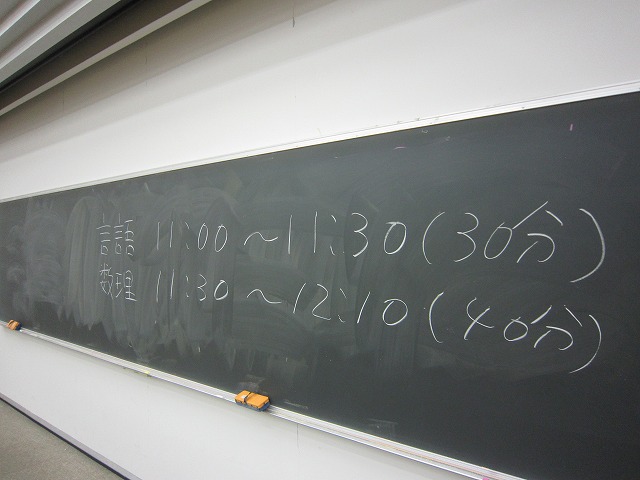 言語 11:00 ～ 11:30 (30分)
数理 11:30 ～ 12:10 (40分)